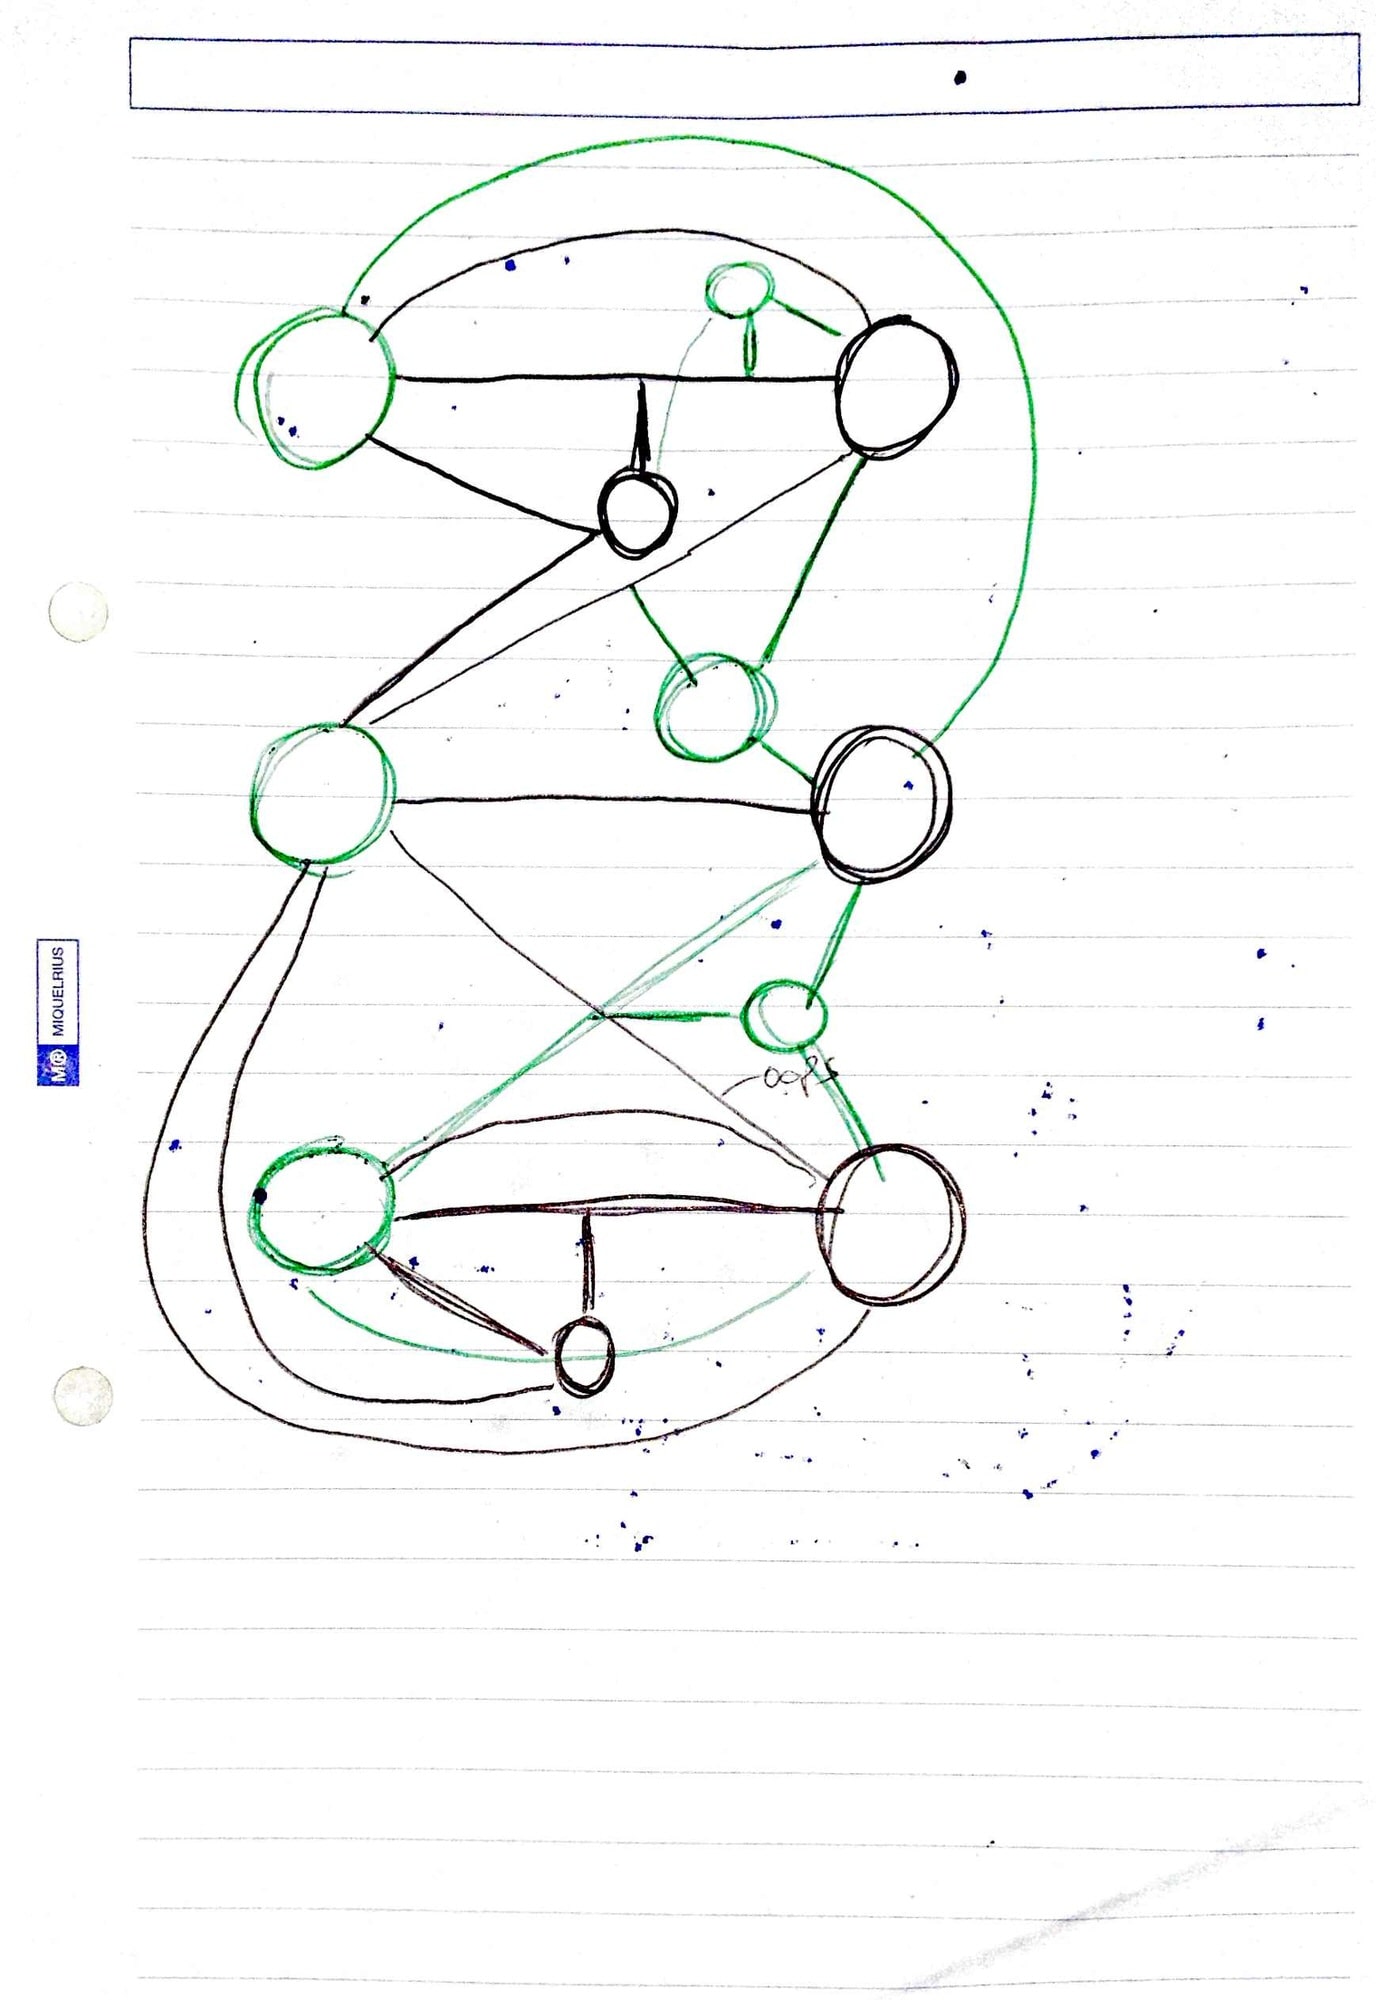 M® MIQUELRIUS
oops